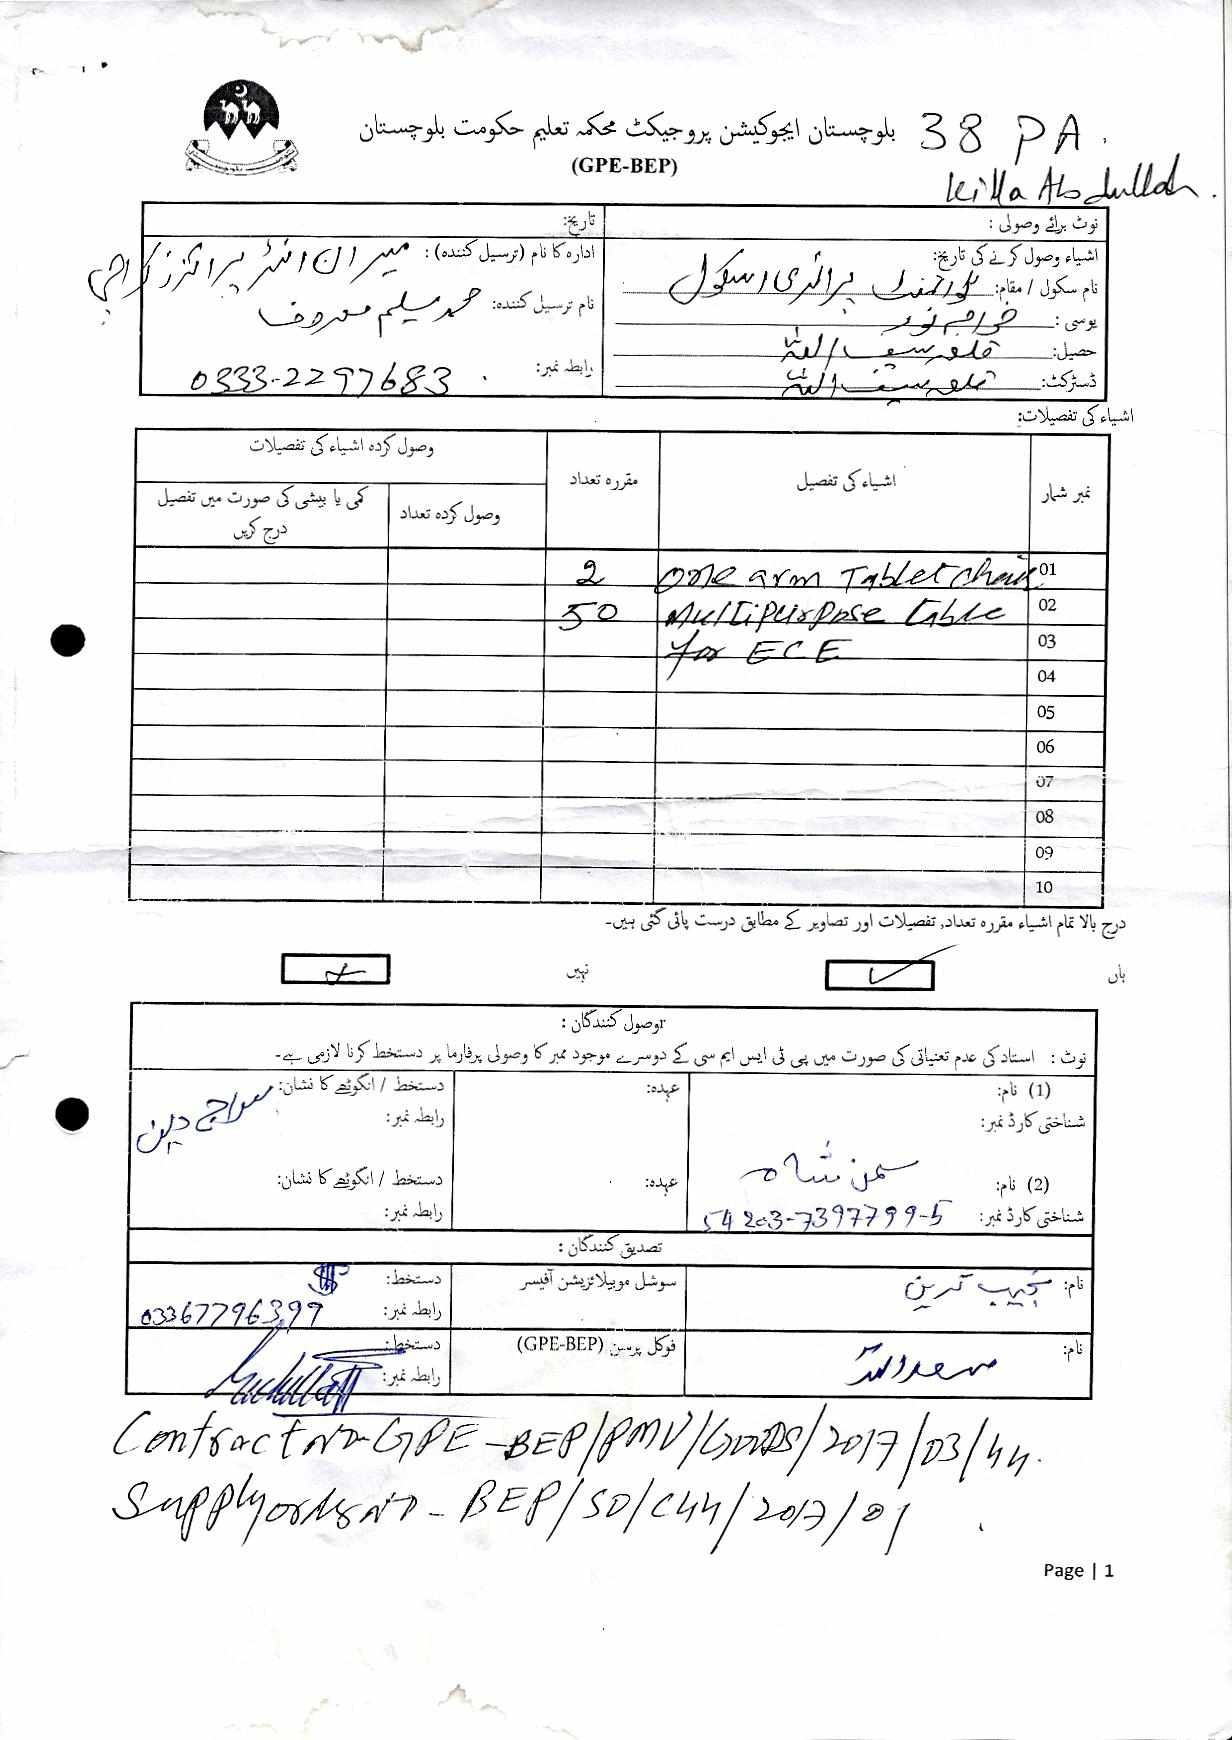 بلوچستان ایجوکیشن پروجیکٹ محکمہ تعلیم حکومت بلوچستان
38 PA.
(GPE-BEP)
Killa Abdullah.
نوٹ برائے وصولی :
تاریخ:
اشیاء وصول کرنے کی تاریخ:
ادارہ کا نام (ترسیل کنندہ) : میران انٹر پرائزز کراچی
نام سکول / مقام: گورنمنٹ پرائمری اسکول
نام ترسیل کنندہ: محمد سلیم معروف
یوسی :
حصیل: قلعہ سیف اللہ
رابطہ نمبر: 0333-2297683
ڈسٹرکٹ: قلعہ سیف اللہ
اشیاء کی تفصیلات:
نمبر شمار
اشیاء کی تفصیل
مقررہ تعداد
وصول کردہ اشیاء کی تفصیلات
وصول کردہ تعداد
کمی یا بیشی کی صورت میں تفصیل
درج کریں
01 one arm Tablet chair 2
02 Multipurpose table 50
03 for ECE
04
05
06
07
08
09
10
درج بالا تمام اشیاء مقررہ تعداد, تفصیلات اور تصاویر کے مطابق درست پائی گئی ہیں۔
ہاں ✓
نہیں
وصول کنندگان :
نوٹ : استاد کی عدم تعنیاتی کی صورت میں پی ٹی ایس ایم سی کے دوسرے موجود ممبر کا وصولی پرفارما پر دستخط کرنا لازمی ہے۔
(1) نام:
عہدہ:
دستخط / انگوٹھے کا نشان: سراج دین
شناختی کارڈ نمبر:
رابطہ نمبر:
(2) نام: سمن شاہ
عہدہ:
دستخط / انگوٹھے کا نشان:
شناختی کارڈ نمبر: 54203-7397799-5
رابطہ نمبر:
تصدیق کنندگان :
نام: نجیب ترین
سوشل موبیلائزیشن آفیسر
دستخط:
رابطہ نمبر: 03367796399
نام: سعداللہ
فوکل پرسن (GPE-BEP)
دستخط:
رابطہ نمبر:
Contract No-GPE-BEP/PMU/GOODS/2017/03/44.
Supply order No - BEP/SO/C44/2017/01
Page | 1